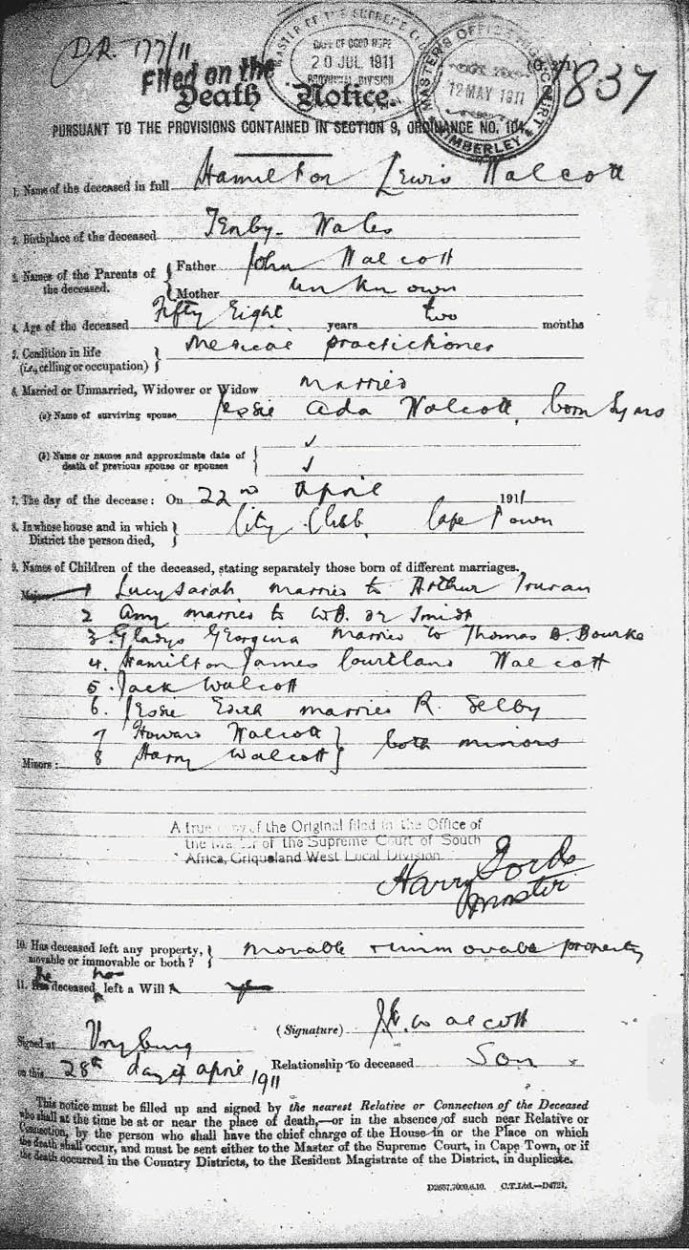 D.R. 177/11
Filed on the
MASTER OF THE SUPREME C
CAPE OF GOOD HOPE
20 JUL 1911
PROVINCIAL DIVISION
MASTER'S OFFICE HIGH COURT
12 MAY 1911
KIMBERLEY
1837
Death Notice.
PURSUANT TO THE PROVISIONS CONTAINED IN SECTION 9, ORDINANCE NO. 104.
1. Name of the deceased in full Hamilton Lewis Walcott
2. Birthplace of the deceased Tenby - Wales
3. Names of the Parents of the deceased. Father John Walcott
Mother unknown
4. Age of the deceased Fifty Eight years two months
5. Condition in life (i.e., calling or occupation) Medical practichioner
6. Married or Unmarried, Widower or Widow married
(a) Name of surviving spouse Jessie Ada Walcott, born
(b) Name or names and approximate date of death of previous spouse or spouses
7. The day of the decease: On 22nd April 1911
8. In whose house and in which District the person died, City Club, Cape Town
9. Names of Children of the deceased, stating separately those born of different marriages.
Majors 1 Lucy Sarah, married to Arthur
2 Amy married to W.B. de Smidt
3. Gladys Georgina married to Thomas B. Bourke
4. Hamilton James Courtland Walcott
5. Jack Walcott
6. Jessie Edith married R. Selby
7 Howard Walcott
Minors: 8 Harry Walcott } both minors
A true copy of the Original filed in the Office of
the Master of the Supreme Court of South
Africa, Griqualand West Local Division.
Harry
Master
10. Has deceased left any property, movable or immovable or both? movable & immovable property
11. Has deceased left a Will? yes
the has
(Signature) J.E. Walcott
Signed at Vryburg
Relationship to deceased Son
on this 28th day of April 1911
This notice must be filled up and signed by the nearest Relative or Connection of the Deceased
who shall at the time be at or near the place of death,—or in the absence of such near Relative or
Connection, by the person who shall have the chief charge of the House in or the Place on which
the death shall occur, and must be sent either to the Master of the Supreme Court, in Cape Town, or if
the death occurred in the Country Districts, to the Resident Magistrate of the District, in duplicate.
C.T.Ltd.—D4721.